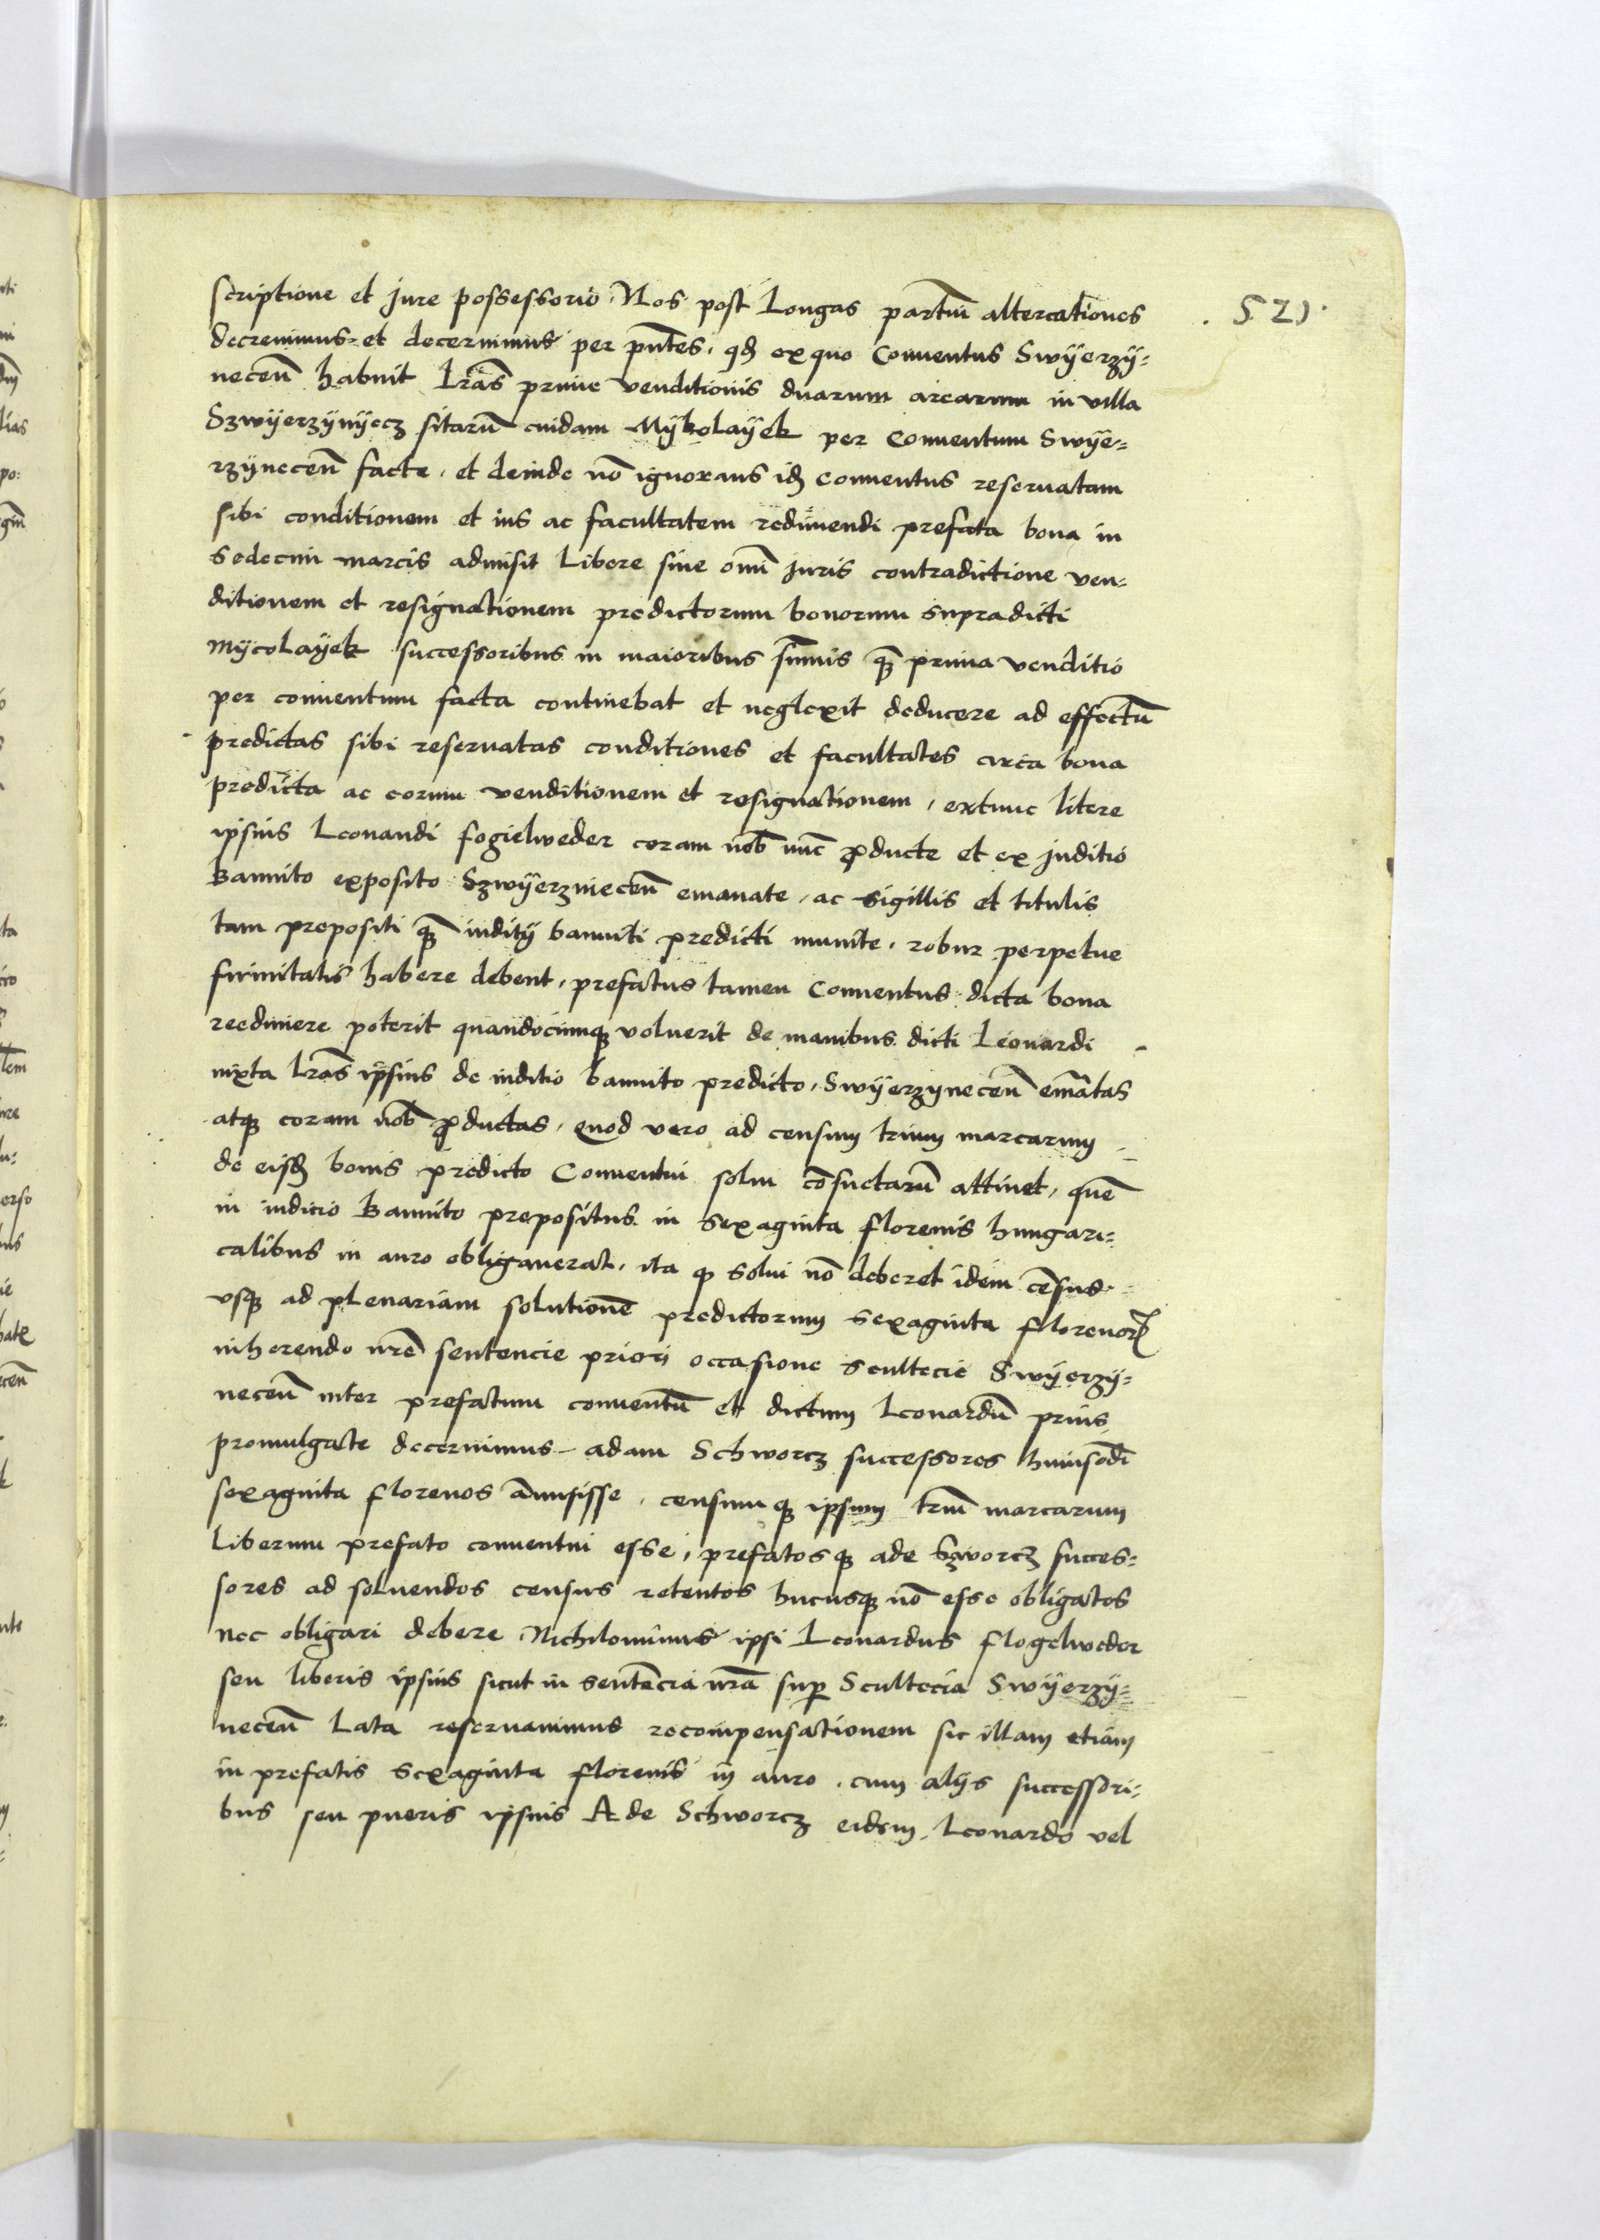 521
scriptione et jure possessorio, Nos post Longas partiũ altercationes
decrevimus et decernimus per pñtes, qđ ex quo Conventus Swÿerzÿ-
neceñ habuit Lrãs prime venditionis duarum arearum in villa
Szwÿerzÿnÿecz sitarũ cuidam Mÿkolaÿek per Conventum Swÿe-
rzÿneceñ facte, et deinde nõ ignorans iđ Conventus reservatam
sibi conditionem et ius ac facultatem redimendi prefata bona in
sedecim marcis admisit Libere sine omĩ juris contradictione ven-
ditionem et resignationem predictorum bonorum supradicti
Mÿcolaÿek successoribus in maioribus sũmis qz̃ prima venditio
per conventum facta continebat et neglexit deducere ad effectũ
predictas sibi reservatas conditiones et facultates circa bona
predicta ac eorum venditionem et resignationem, extunc litere
ipsius Leonardi fogielweder coram nob̃ nũc ꝓducte et ex juditio
Bannito exposito Szwÿerznieceñ emanate, ac sigillis et titulis
tam prepositi qz̃ juditÿ banniti predicti munite, robur perpetue
firmitatis habere debent, prefatus tamen Conventus dicta bona
reedimere poterit quandocumqz voluerit de manibus dicti Leonardi
iuxta Lrãs ipsius de juditio bannito predicto, Swÿerzyneceñ emãtas
atqz coram nob̃ ꝓductas, Quod vero ad censum trium marcarum
de eisđ bonis predicto Conventui solvi cõsuetarũ attinet, quẽ
in iudicio Bannito prepositus in sexaginta florenis hungari-
calibus in auro obligaverat, ita qz solvi nõ deberet idem cẽsus
usqz ad plenariam solutionẽ predictorum sexaginta florenoꝝ
inherendo nrẽ sentencie priori occasione scultecie Swÿerzÿ-
neceñ inter prefatum conventũ et dictum Leonardũ prius
promulgate decernimus adam Schworcz successores huiusmõdi
sexaginta florenos ãmisisse, censumqz ipsum triũ marcarum
Liberum prefato conventui esse, prefatosqz ade Szworcz succes-
sores ad solvendos census retentos hucusqz nõ esse obligatos
nec obligari debere, Nichilominus ipsi Leonardus flogelweder
seu liberis ipsius sicut in sentẽcia nrã suꝑ Scultecia Swÿerzÿ-
neceñ Lata reservavimus recompensationem sic illam etiam
in prefatis sexaginta florenis in auro, cum alÿs successori-
bus seu pueris ipsius Ade Schworcz eidem Leonardo vel